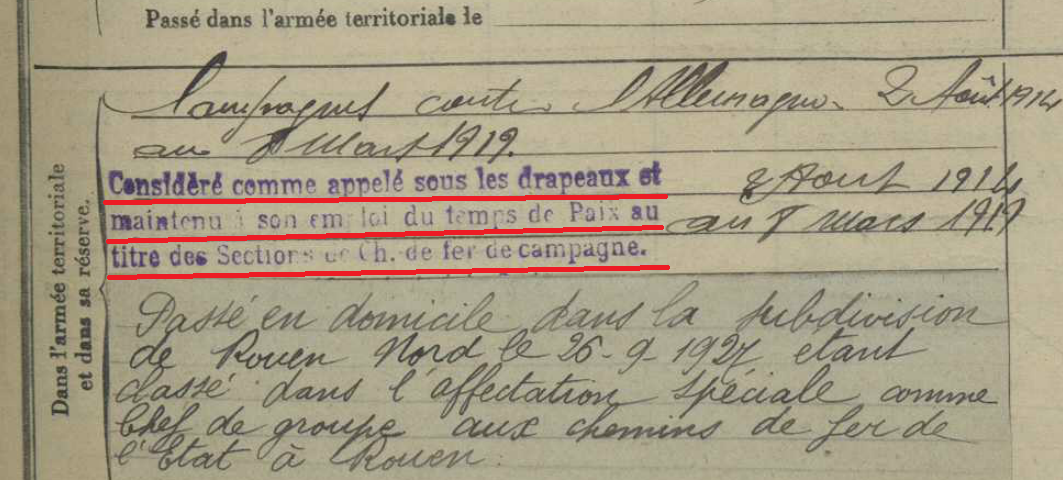 Passé dans l'armée territoriale le
Dans l'armée territoriale
et dans sa réserve.
Campagnes contre l'Allemagne. 2 Août 1914
au 8 Mars 1919.
Considéré comme appelé sous les drapeaux et 2 Aout 1914
maintenu à son emploi du temps de Paix au au 8 mars 1919
titre des Sections de Ch. de fer de campagne.
Passé en domicile dans la subdivision
de Rouen Nord le 26-9-1927 étant
classé dans l'affectation spéciale comme
Chef de groupe aux chemins de fer de
l'Etat à Rouen